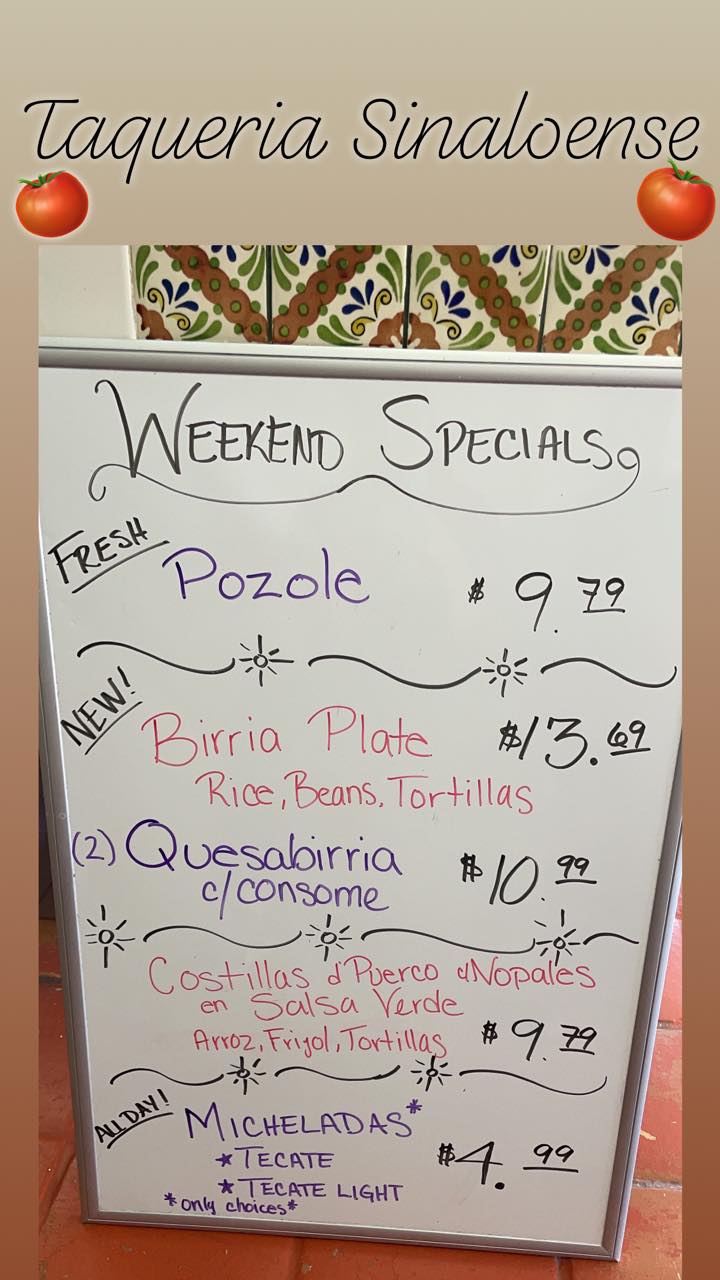 Taqueria Sinaloense
WEEKEND SPECIALS
FRESH
Pozole $ 9.79
NEW!
Birria Plate $13.69
Rice, Beans, Tortillas
(2) Quesabirria $10.99
c/consome
Costillas d'Puerco y Nopales
en Salsa Verde
Arroz, Frijol, Tortillas $9.79
ALL DAY!
MICHELADAS* $4.99
★TECATE
★TECATE LIGHT
*only choices*